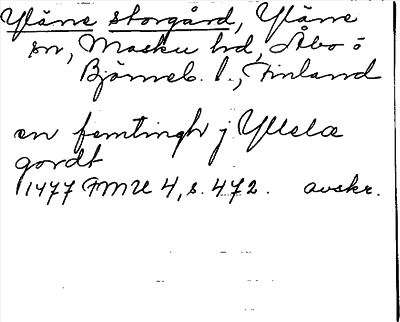 Yläne storgård, Yläne
sn, Masku hd, Åbo o
Björneb. l., Finland
en femtingh j Yllelæ
gordt
1477 FMU 4, s. 472. avskr.